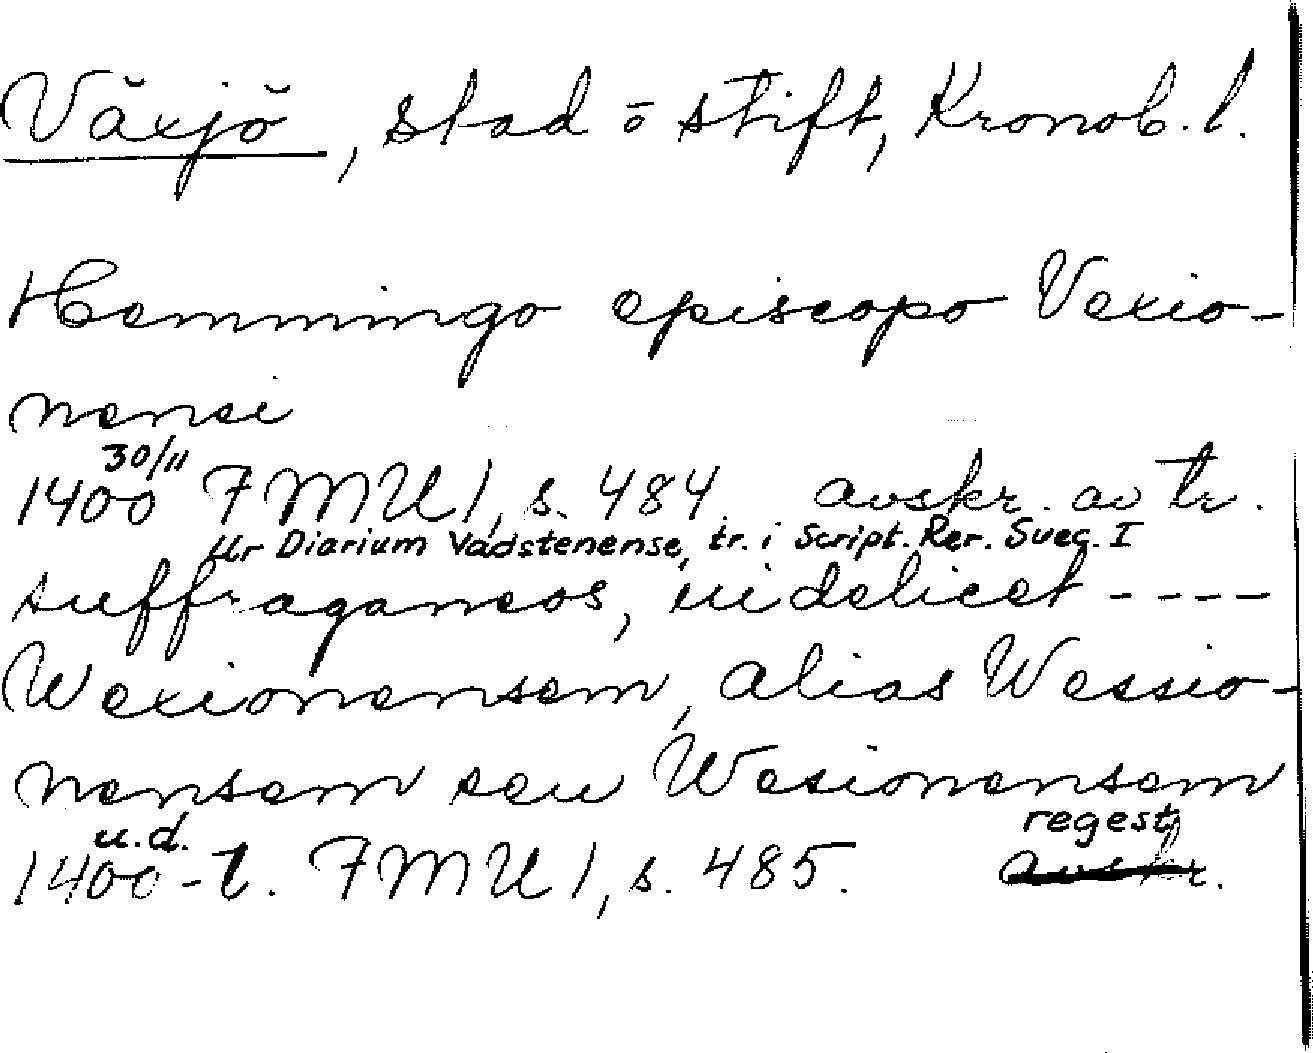 Växjö, stad o stift, Kronob. l.
Hemmingo episcopo Vexio-
nensi
30/11
1400 FMU 1, s. 484. avskr. av tr.
Ur Diarium Vadstenense, tr. i Script. Rer. Suec. I
suffraganeos, uidelicet ----
Wexionensem, alias Wessio-
nensem seu Wesionensem
u.d. regest
1400-t. FMU 1, s. 485. avskr.